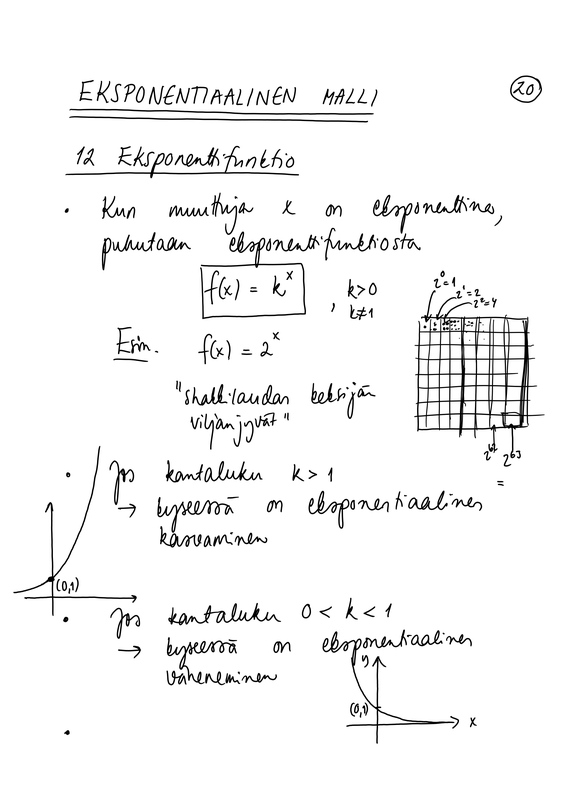 EKSPONENTIAALINEN MALLI
20
12 Eksponenttifunktio
• Kun muuttuja x on eksponenttina,
puhutaan eksponenttifunktiosta
f(x) = kˣ , k>0
k≠1
2⁰=1
2¹=2
2²=4
Esim. f(x) = 2ˣ
"shakkilaudan keksijän
viljanjyvät"
2⁶² 2⁶³
=
• Jos kantaluku k > 1
→ kyseessä on eksponentiaalinen
kasvaminen
(0,1)
• Jos kantaluku 0 < k < 1
→ kyseessä on eksponentiaalinen
väheneminen
y
(0,1)
x
•